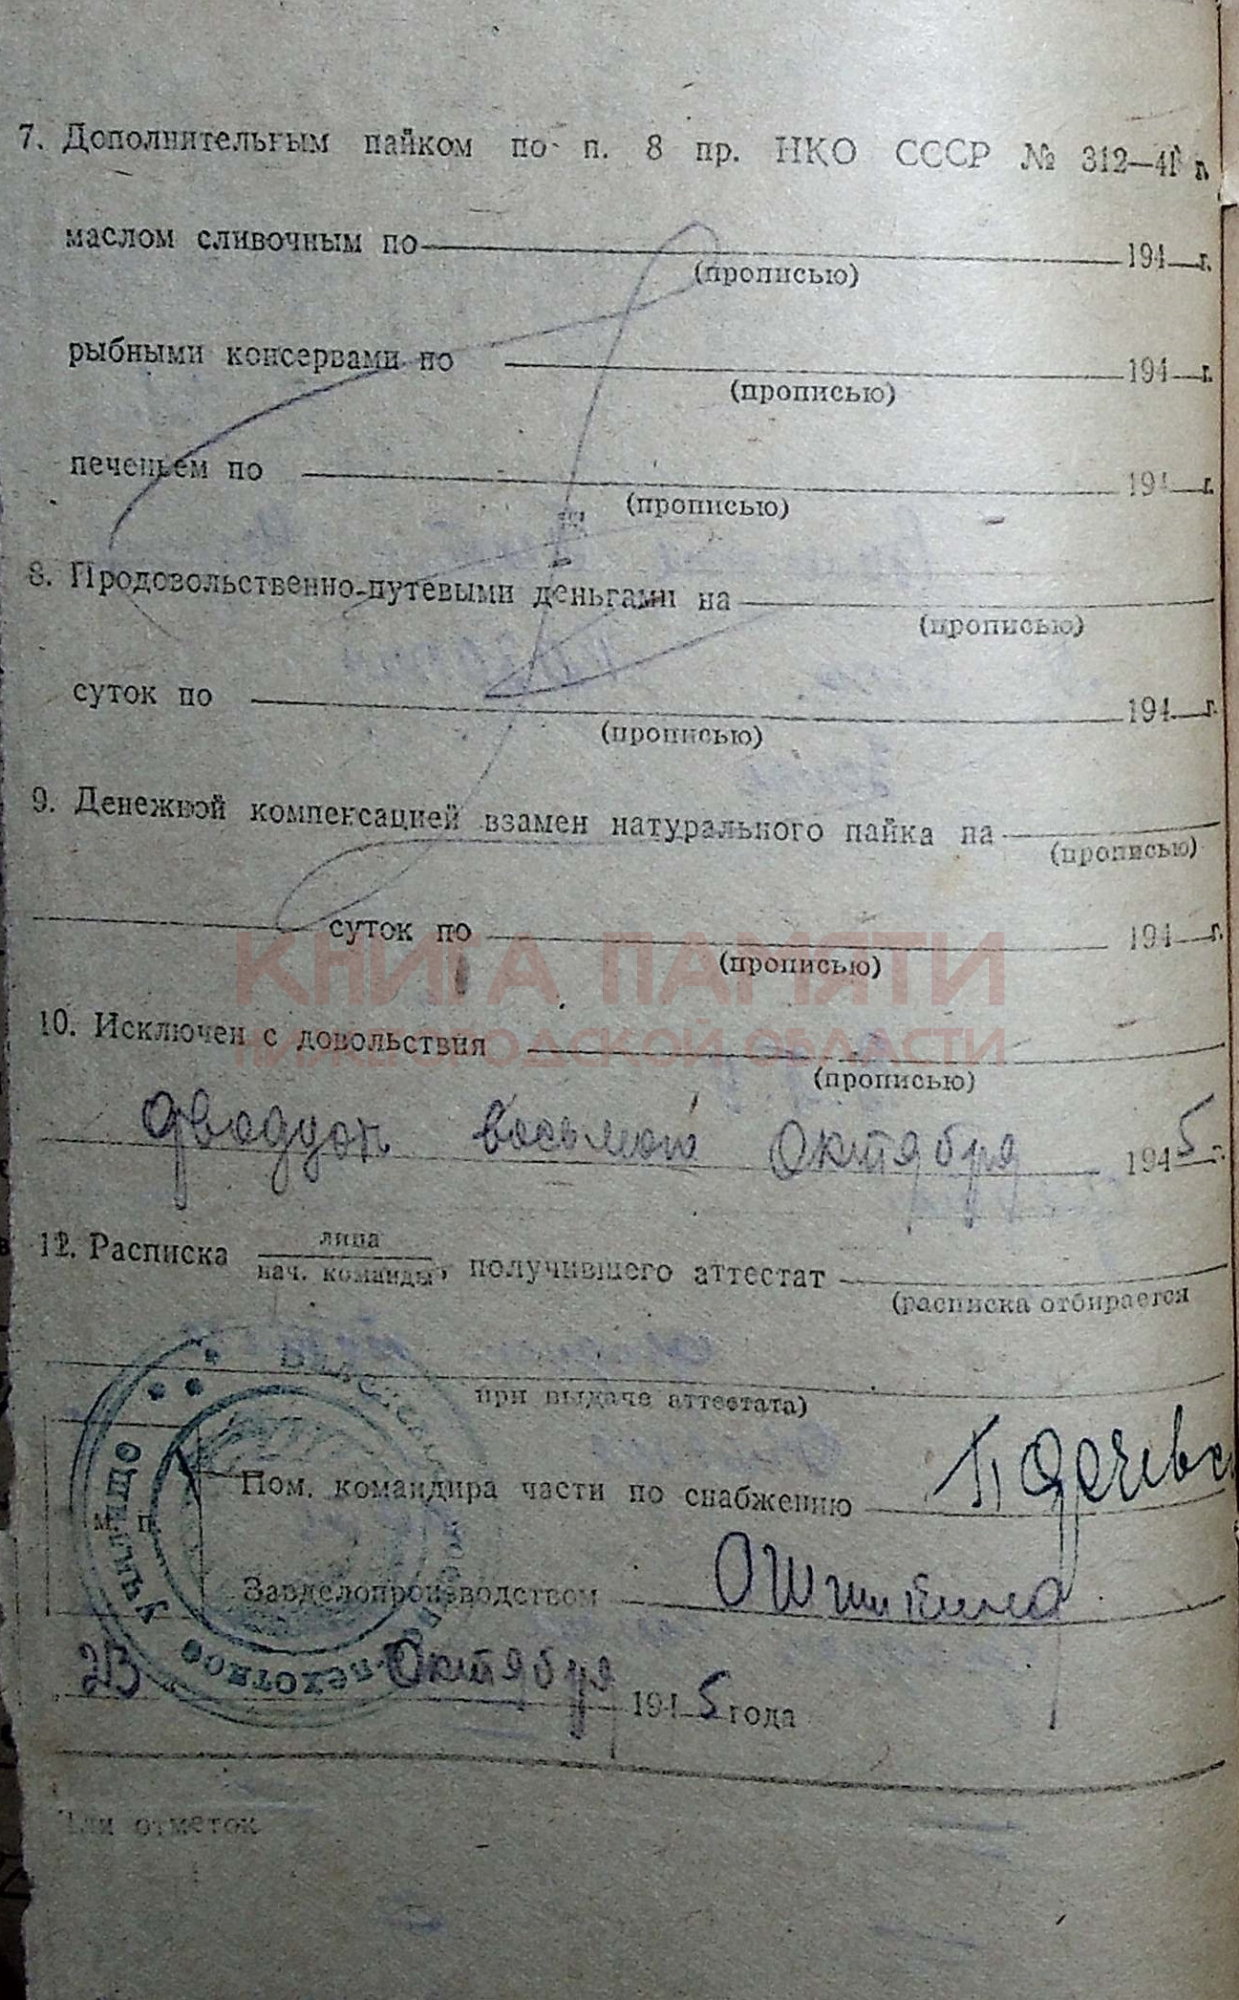 7. Дополнительным пайком по п. 8 пр. НКО СССР № 312—41 г.
маслом сливочным по 194 г.
(прописью)
рыбными консервами по 194 г.
(прописью)
печеньем по 194 г.
(прописью)
8. Продовольственно-путевыми деньгами на
(прописью)
суток по 194 г.
(прописью)
9. Денежной компенсацией взамен натурального пайка на
(прописью)
суток по 194 г.
КНИГА ПАМЯТИ
(прописью)
10. Исключен с довольствия
НИЖЕГОРОДСКОЙ ОБЛАСТИ
(прописью)
восьмого Октября 1945 г.
12. Расписка лица
нач. команды, получившего аттестат
(расписка отбирается
при выдаче аттестата)
Пом. командира части по снабжению
м. п.
Завделопроизводством
23 Октября 1945 года
Для отметок
пехотное Училище